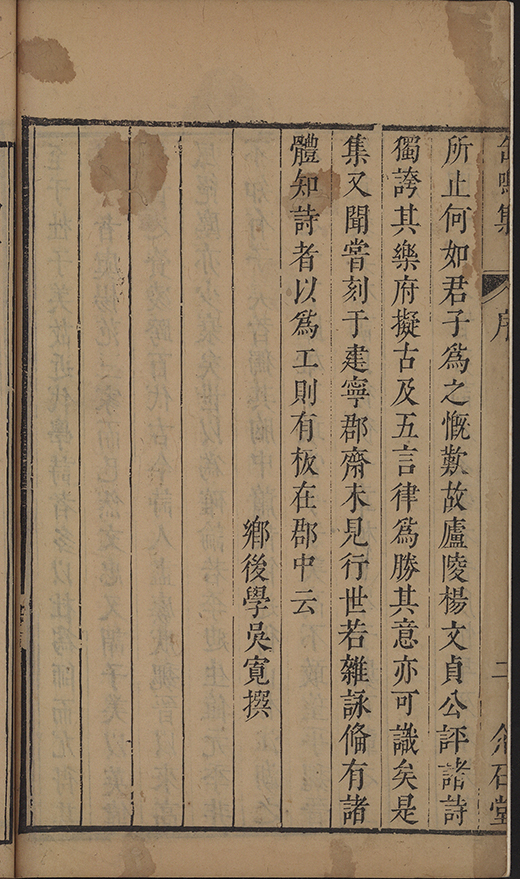 所止何如君子為之慨歎故廬陵楊文貞公評諸詩
獨誇其樂府擬古及五言律為勝其意亦可識矣是
集又聞嘗刻于建寧郡齋未見行世若雜詠俻有諸
體知詩者以爲工則有板在郡中云
鄉後學吳寬撰